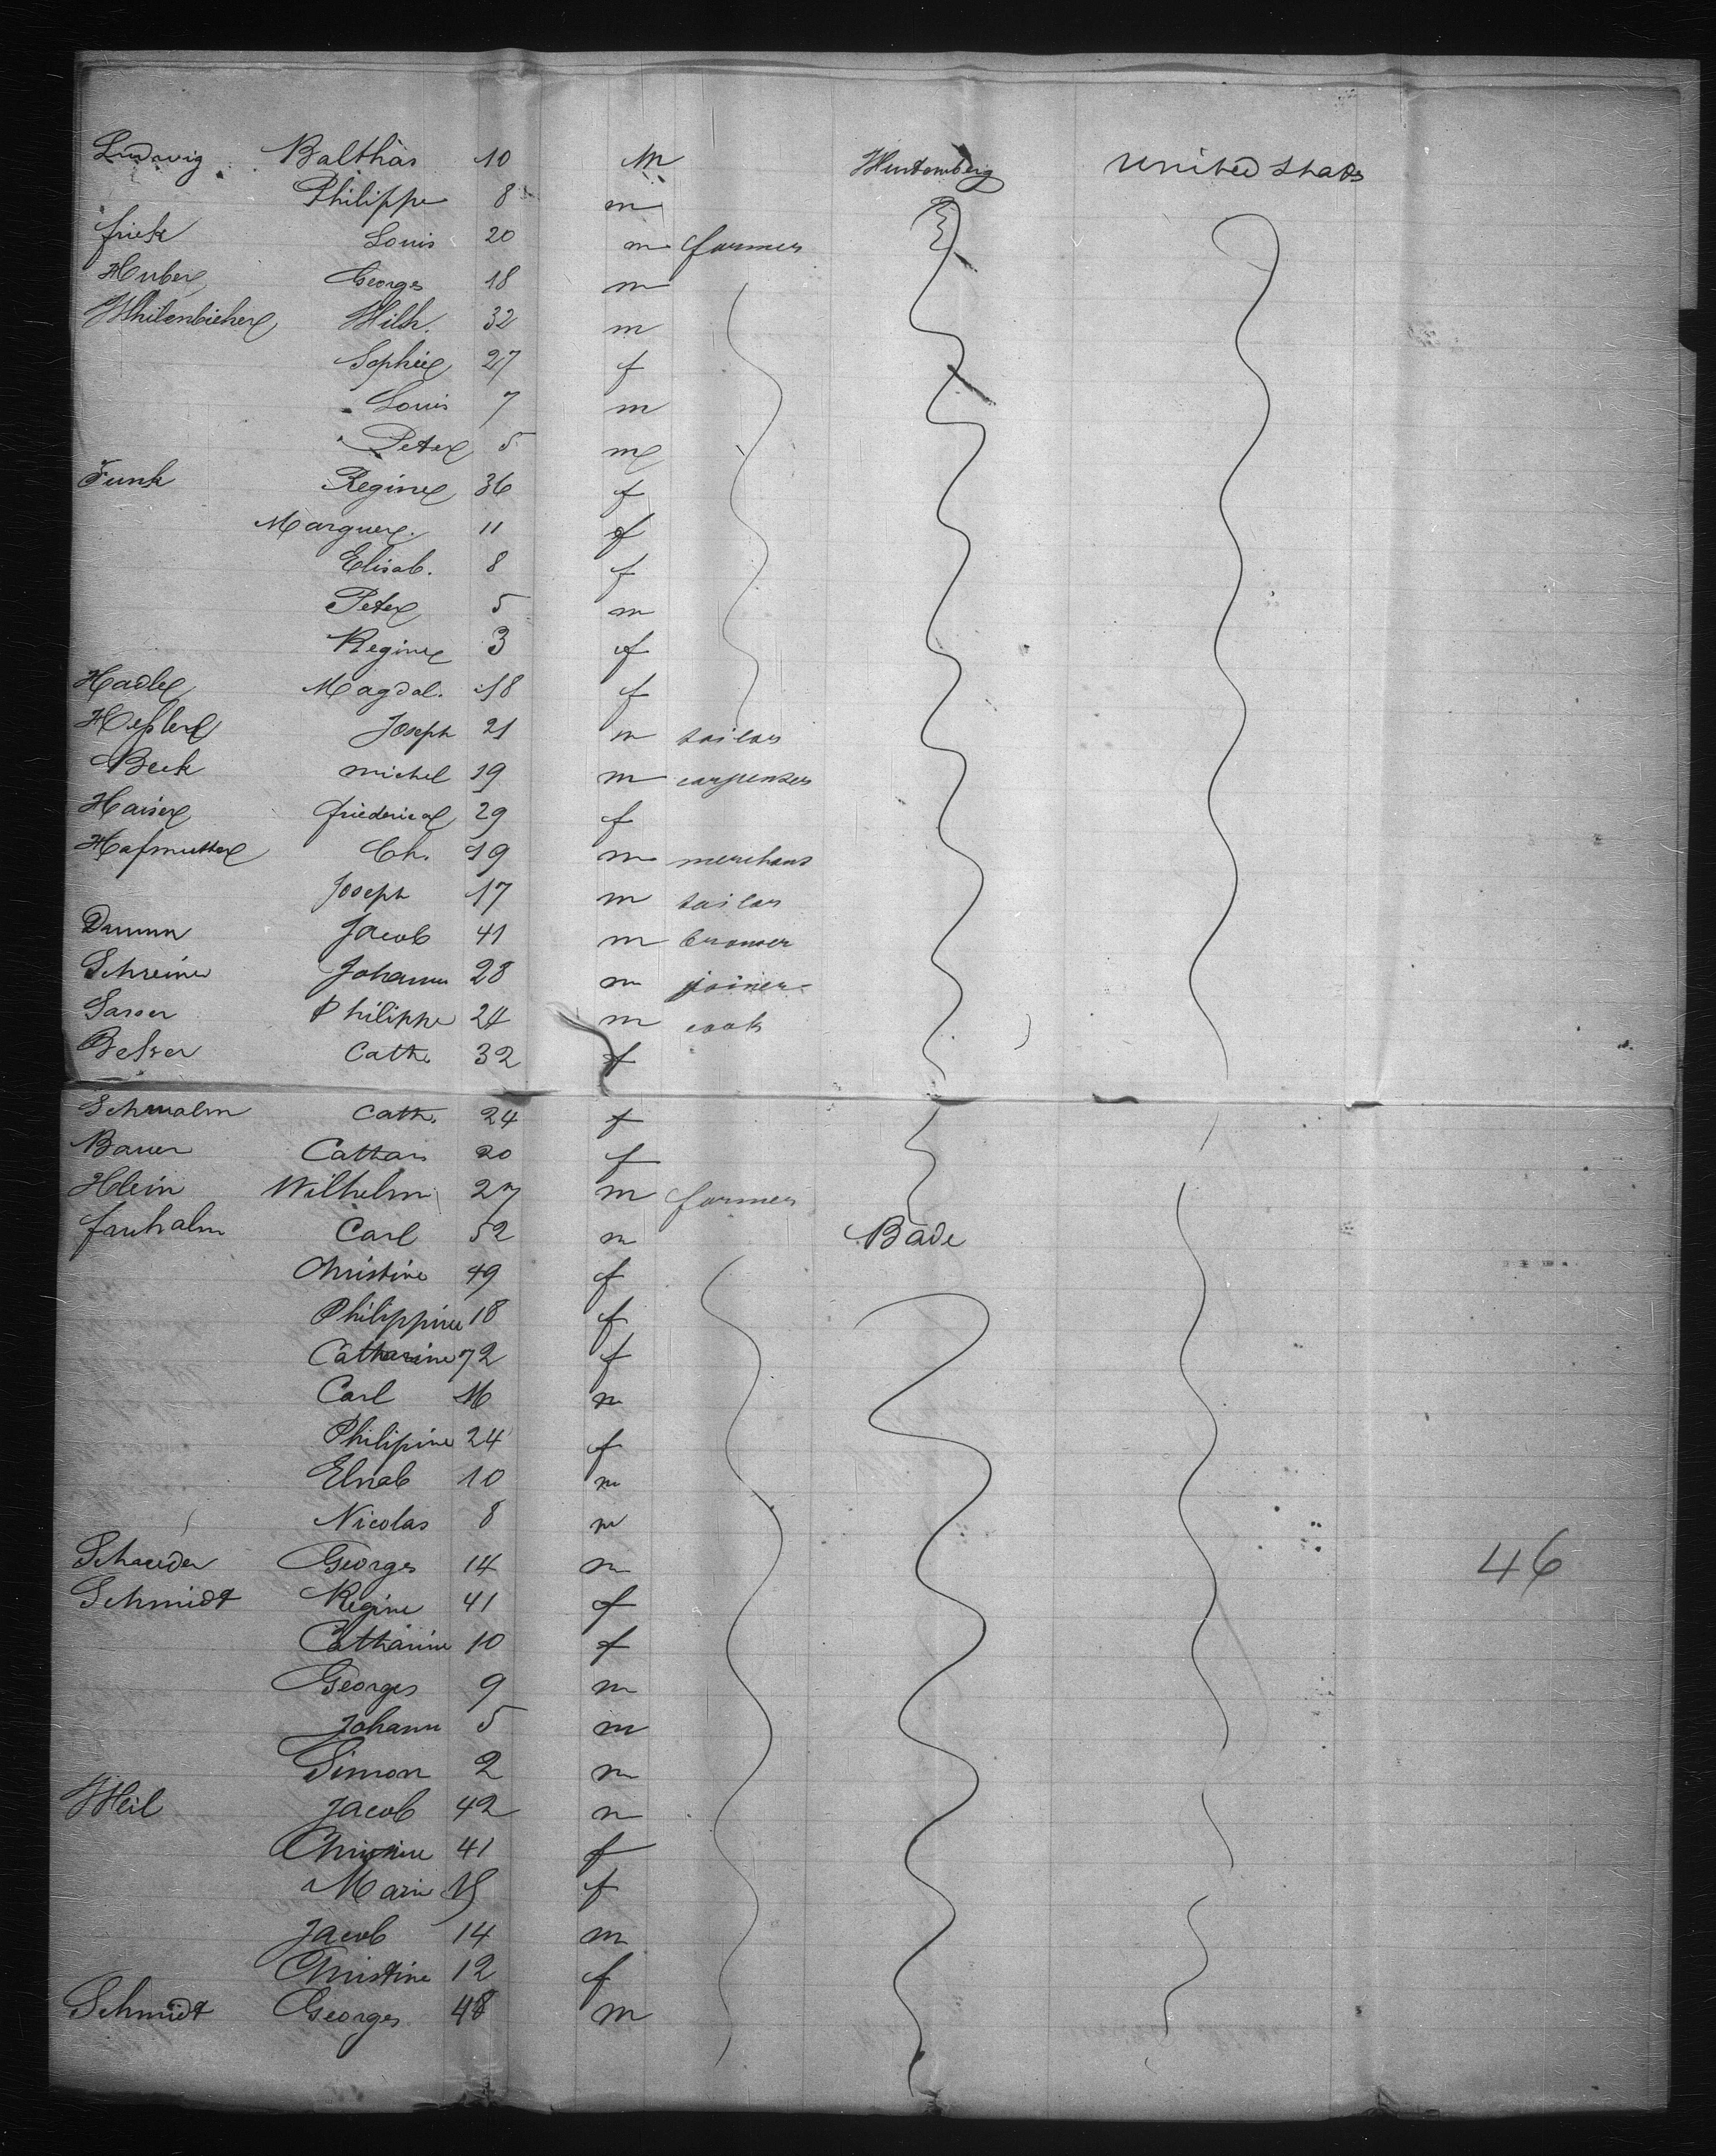 Ludwig Balthas 10 m Wurtemberg United States
Philippe 8 m
frick Louis 20 m farmer
Huber Georges 18 m
Wilh. 32 m
Sophie 27 f
Louis 7 m
Peter 5 m
Funk Regine 36 f
Marguer. 11 f
Elisab. 8 f
Peter 5 m
Regine 3 f
Hadle Magdal. 18 f
Joseph 21 m tailor
Beck michel 19 m carpenter
Haiser friederica 29 f
Ch. 19 m merchant
Joseph 17 m tailor
Damm Jacob 41 m brower
Schreiner Johann 28 m joiner
Sasser Philippe 24 m cook
Cath. 32 f
Schwalm Cath. 24 f
Bauer Cathar 20 f
Klein Wilhelm 27 m farmer
Carl 52 m Bade
Christine 49 f
Philippine 18 f
Catharine 72 f
Carl 16 m
Philipine 24 f
10 m
Nicolas 8 m
Georges 14 m
Schmidt Regine 41 f
Catharine 10 f
Georges 9 m
Johann 5 m
Simon 2 m
Weil Jacob 42 m
41 f
Marie f
Jacob 14 m
Christine 12 f
Schmidt Georges 48 m
46